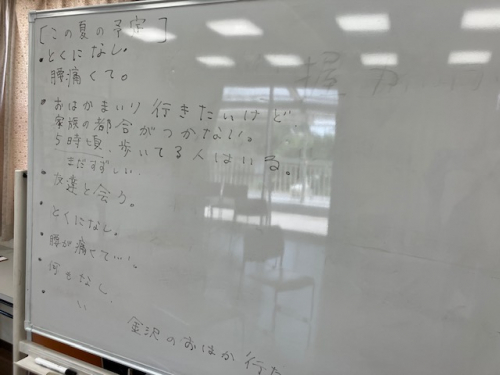 [この夏の予定]
• とくになし。
腰痛くて。
• おはかまいり 行きたいけど、
家族の都合がつかない。
• 5時頃、歩いてる人はいる。
まだすずしい
• 友達と会う。
• とくになし。
• 腰が痛くて...。
• 何もなし。
• 〃
金沢のおはか 行
握力